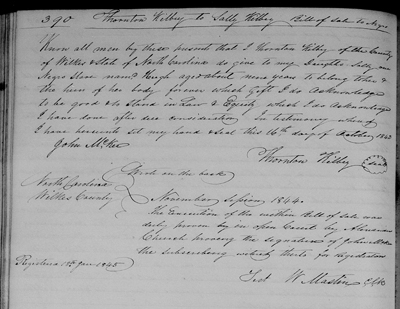 390 Thornton Kilby to Sally Kilby Bill of Sale to Negro
Know all men by these presents that I Thornton Kilby of the County
of Wilkes & State of North Carolina do give to my Daughter Sally one
Negro Slave named Hugh aged about nine years to belong to her &
the heirs of her body forever which Gift I do Acknowledge
to be good & to Stand in Law & Equity which I do Acknowledge
I have done after due consideration in testimony whereof
I have hereunto set my hand & Seal this 16th day of October
John McKee
Thornton Kilby Seal
on the back
North Carolina
Wilkes County
November Session 1844.
The Execution of the within Bill of Sale was
duly proven by in Open Court by
Church proving the signature of John McKee
the subscribing witness thereto for Registration
Registered Jan 1845
Test W Mastin Clk